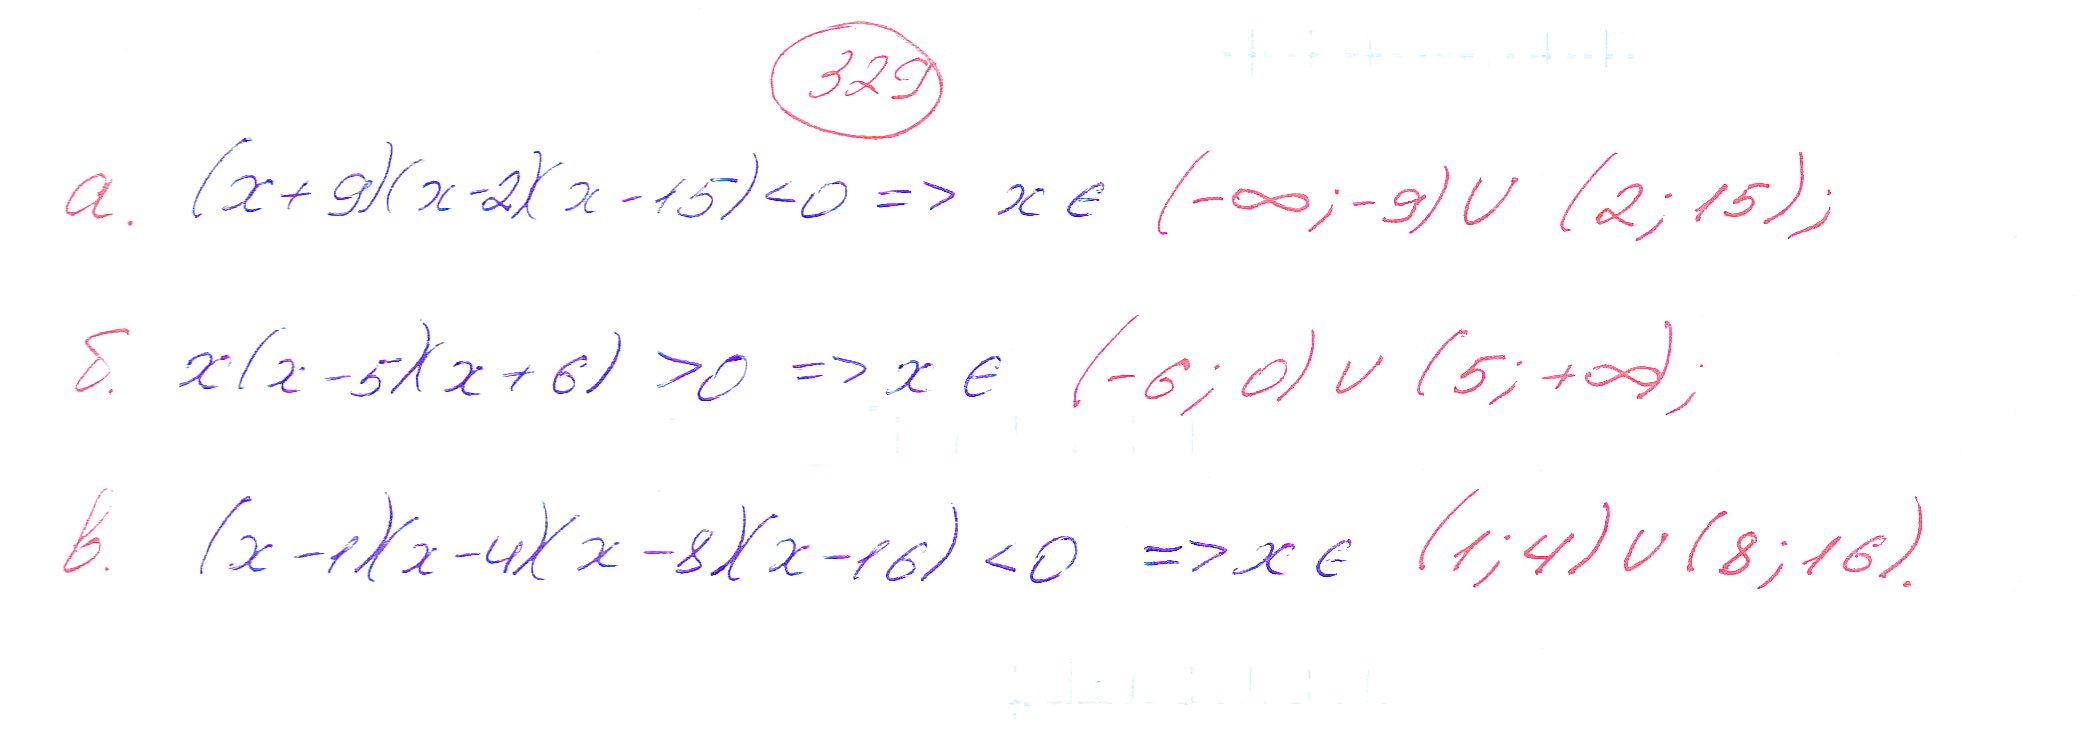 329
а. (x+9)(x-2)(x-15)<0 => x ∈ (-∞; -9) ∪ (2; 15);
б. x(x-5)(x+6) >0 => x ∈ (-6; 0) ∪ (5; +∞);
в. (x-1)(x-4)(x-8)(x-16) <0 => x ∈ (1; 4) ∪ (8; 16).